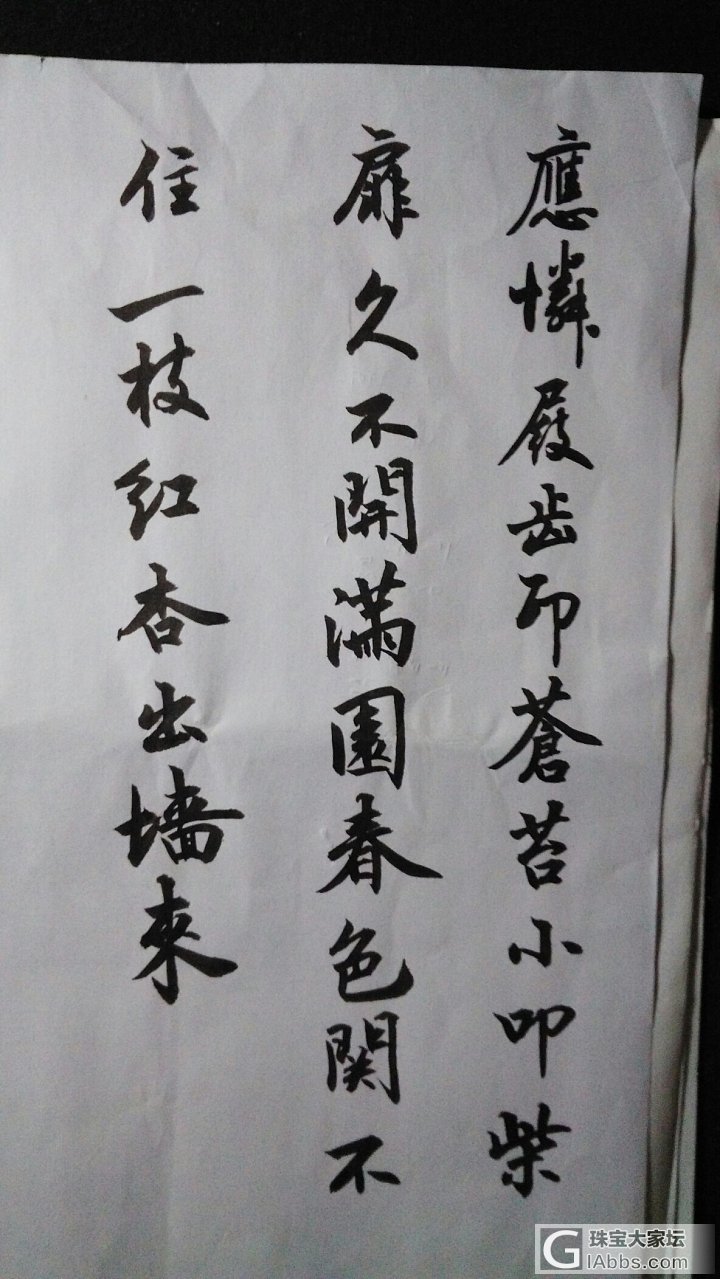 應憐屐齒印蒼苔小叩柴
扉久不開滿園春色関不
住一枝红杏出墻來
珠宝大家坛
GIAbbs.com